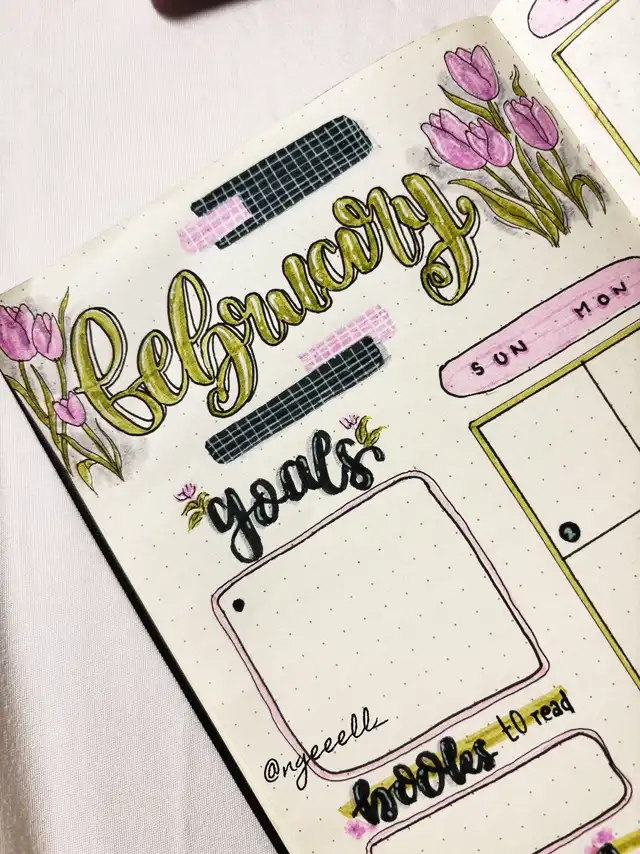 february
SUN MON
goals
2
@ngeeell
books to read